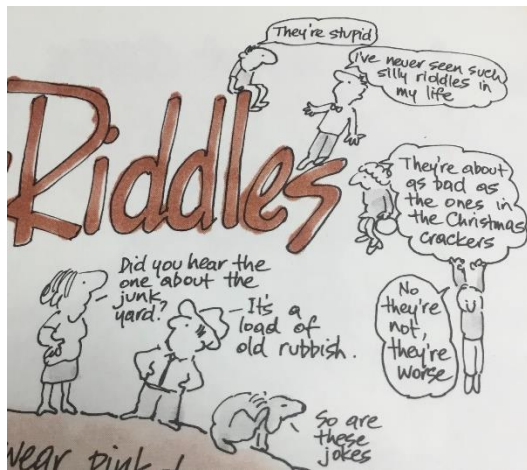 They're stupid
I've never seen such
silly riddles in
my life
Riddles
They're about
as bad as
the ones in
the Christmas
crackers
No
they're
not,
they're
worse
Did you hear the
one about the
junk
yard?
It's a
load of
old rubbish.
So are
these
jokes
wear pink